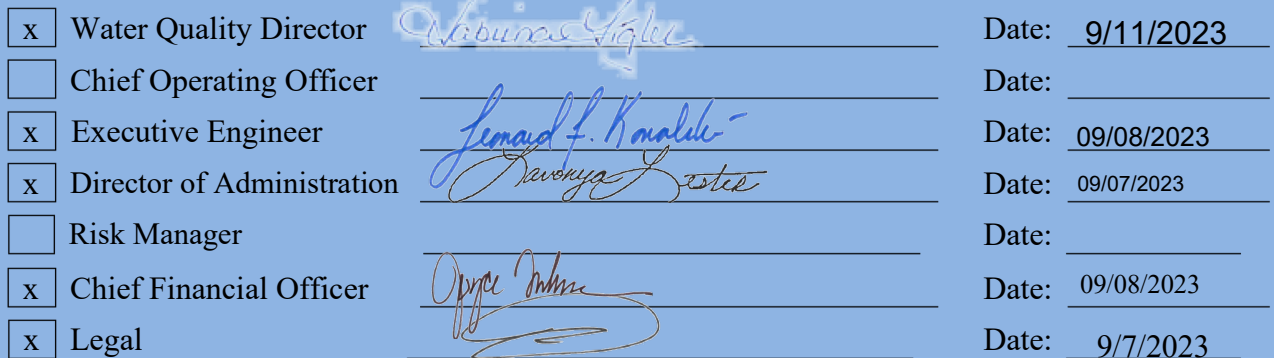 x Water Quality Director Date: 9/11/2023
Chief Operating Officer Date:
x Executive Engineer Leonard F. Date: 09/08/2023
x Director of Administration Lavonya Lester Date: 09/07/2023
Risk Manager Date:
x Chief Financial Officer Joyce Date: 09/08/2023
x Legal Date: 9/7/2023